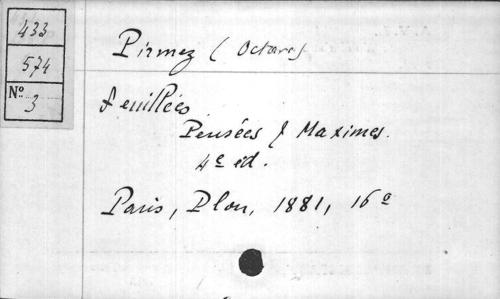 433
574
Nº 3
Pirmez (Octave)
Feuillées
Pensées & Maximes.
4e ed.
Paris, Plon, 1881, 16º